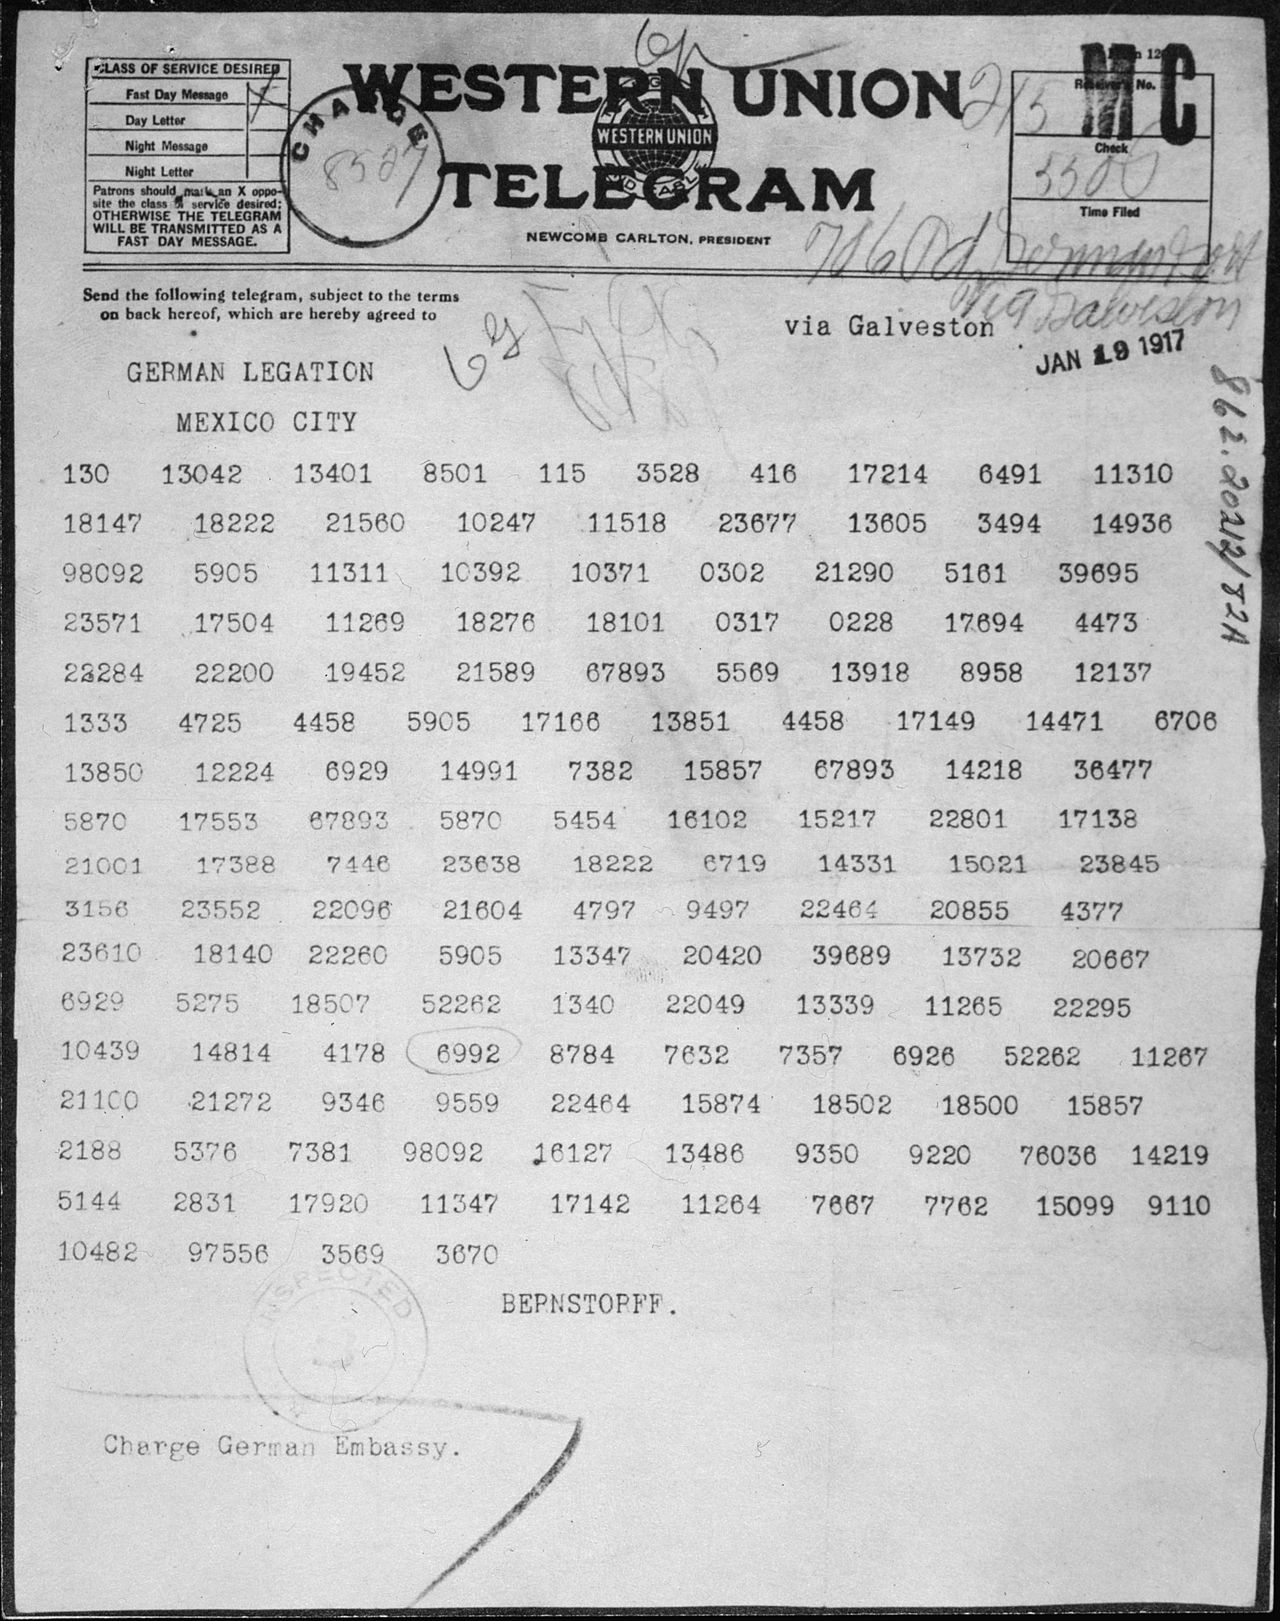 CLASS OF SERVICE DESIRED
Fast Day Message
Day Letter
Night Message
Night Letter
Patrons should mark an X oppo-
site the class of service desired;
OTHERWISE THE TELEGRAM
WILL BE TRANSMITTED AS A
FAST DAY MESSAGE.
CHARGE
8527
WESTERN UNION
WESTERN UNION
TELEGRAM
NEWCOMB CARLTON, PRESIDENT
215
Receiver's No.
Check
Time Filed
Via Galveston
Send the following telegram, subject to the terms
on back hereof, which are hereby agreed to
via Galveston
JAN 19 1917
GERMAN LEGATION
MEXICO CITY
862.20212/82A
130 13042 13401 8501 115 3528 416 17214 6491 11310
18147 18222 21560 10247 11518 23677 13605 3494 14936
98092 5905 11311 10392 10371 0302 21290 5161 39695
23571 17504 11269 18276 18101 0317 0228 17694 4473
22284 22200 19452 21589 67893 5569 13918 8958 12137
1333 4725 4458 5905 17166 13851 4458 17149 14471 6706
13850 12224 6929 14991 7382 15857 67893 14218 36477
5870 17553 67893 5870 5454 16102 15217 22801 17138
21001 17388 7446 23638 18222 6719 14331 15021 23845
3156 23552 22096 21604 4797 9497 22464 20855 4377
23610 18140 22260 5905 13347 20420 39689 13732 20667
6929 5275 18507 52262 1340 22049 13339 11265 22295
10439 14814 4178 6992 8784 7632 7357 6926 52262 11267
21100 21272 9346 9559 22464 15874 18502 18500 15857
2188 5376 7381 98092 16127 13486 9350 9220 76036 14219
5144 2831 17920 11347 17142 11264 7667 7762 15099 9110
10482 97556 3569 3670
BERNSTORFF.
INSPECTED
Charge German Embassy.